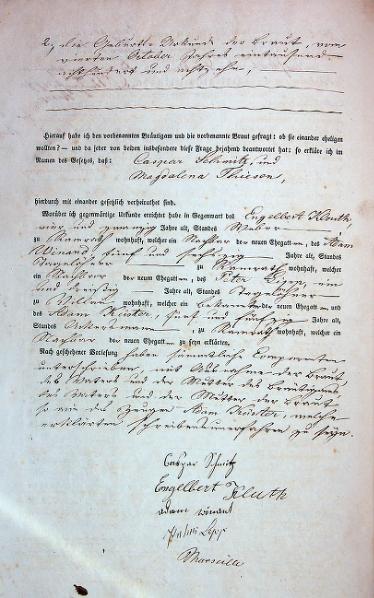 2, die Geburts-Urkunde der Braut, vom
vierten October Jahres eintausend
achthundert und achtzehn,
Hierauf habe ich den vorbenannten Bräutigam und die vorbenannte Braut gefragt: ob sie einander ehelichen
wollten? — und da jeder von beiden insbesondere diese Frage bejahend beantwortet hat: so erkläre ich im
Namen des Gesetzes, daß: Caspar Schmitz, und
Magdalena Thiesen,
hierdurch mit einander gesetzlich verheirathet sind.
Worüber ich gegenwärtige Urkunde errichtet habe in Gegenwart des Engelbert Kluth,
vier und zwanzig Jahre alt, Standes Weber
zu wohnhaft, welcher ein Nachbar der neuen Ehegatten, des Adam
Winand fünf und sechzig Jahre alt, Standes
Tagelöhner zu wohnhaft, welcher
ein Nachbar der neuen Ehegatten, des Peter ein
und dreißig Jahre alt, Standes
zu wohnhaft, welcher ein Bekannter der neuen Ehegatten und
des Adam Küster, fünf und Jahre alt,
Standes Ackersmann zu wohnhaft, welcher ein
Nachbar der neuen Ehegatten zu seyn erklärten.
Nach geschehener Vorlesung haben sämmtliche Comparenten
unterschrieben, mit Ausnahme der Braut,
des Vaters und der Mutter des Bräutigams,
des Vaters und der Mutter der Braut
so wie des Zeugen Adam Küster, welche
erklärten schreibensunerfahren zu seyn.
Caspar Schmitz
Engelbert Kluth
adam winant